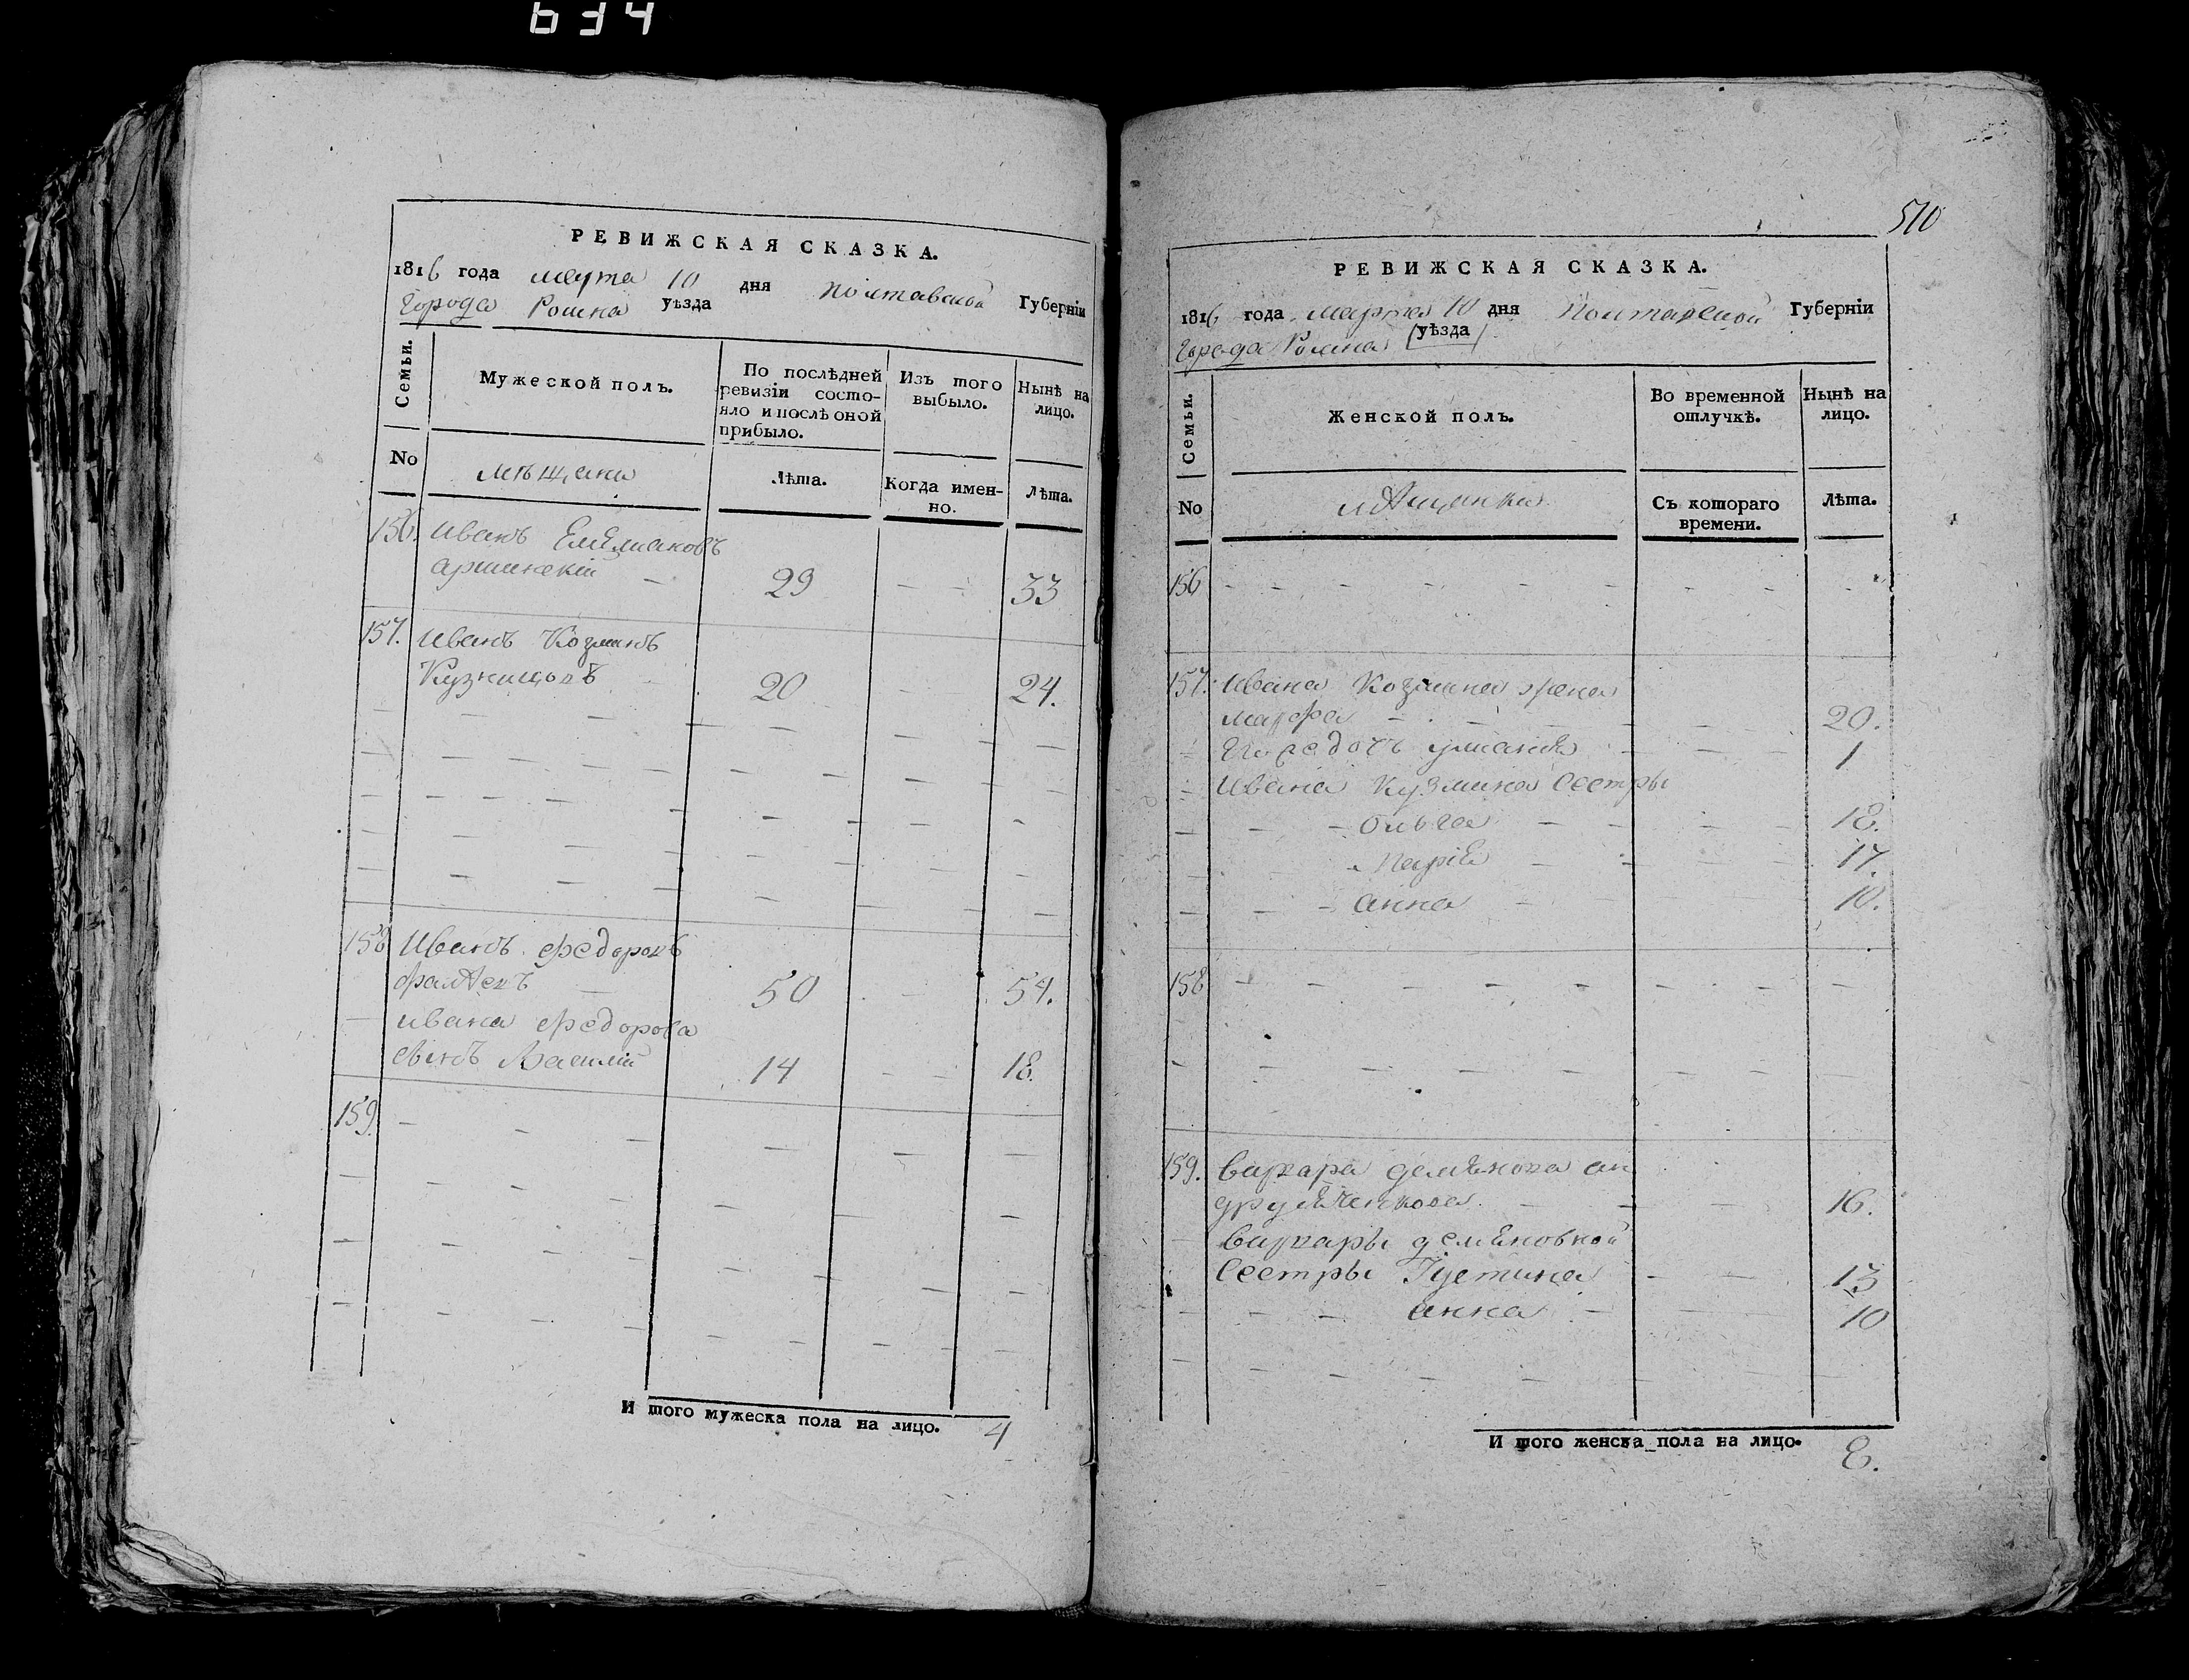 634
РЕВИЖСКАЯ СКАЗКА.
1816 года марта 10 дня Полтавской Губерніи
Города Ромна уѣзда
Семьи.
Мужеской полъ.
По послѣдней ревизіи состояло и послѣ оной прибыло.
Изъ того выбыло.
Нынѣ на лицо.
No
мѣщане
Лѣта.
Когда именно.
Лѣта.
156. Иванъ Емелиановъ
29 33
157. Иванъ Козминъ
Кузнецовъ 20 24.
158 Иванъ Федоровъ
50 54.
Ивана Федорова
сынъ Василій 14 18.
159.
И того мужеска пола на лицо. 4
510
РЕВИЖСКАЯ СКАЗКА.
1816 года марта 10 дня Полтавской Губерніи
Города Ромна уѣзда
Семьи.
Женской полъ.
Во временной отлучкѣ.
Нынѣ на лицо.
No
мѣщанки
Съ котораго времени.
Лѣта.
156
157. Ивана Козмина жена
марфа 20.
1
Ивана Кузмина сестры
Ольга 18.
Марія 17.
анна 10.
158
159. Варвара демянова ан
16.
Варвары демяновной
Сестры Густина 13
анна 10
И того женска пола на лицо. 8.